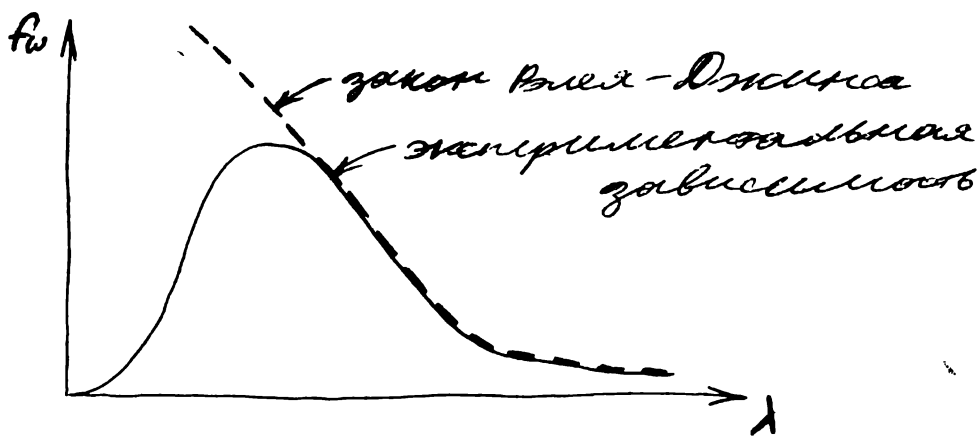 fω
закон Рэлея – Джинса
экспериментальная
зависимость
λ